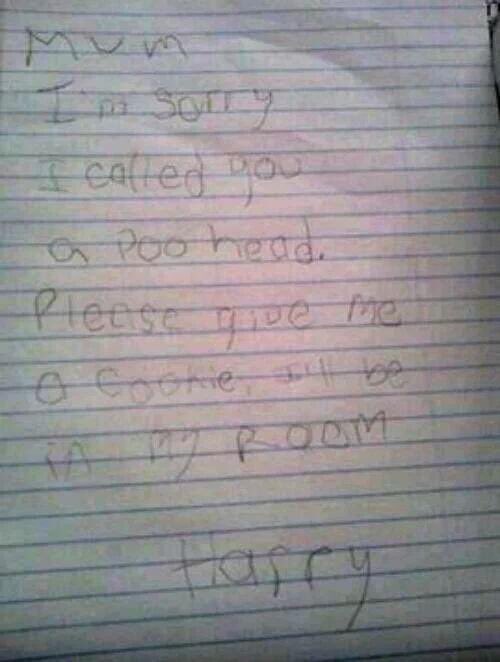 Mum
I'm sorry
I called you
a poo head.
Please give me
a cookie. I'll be
in my ROOM
Harry